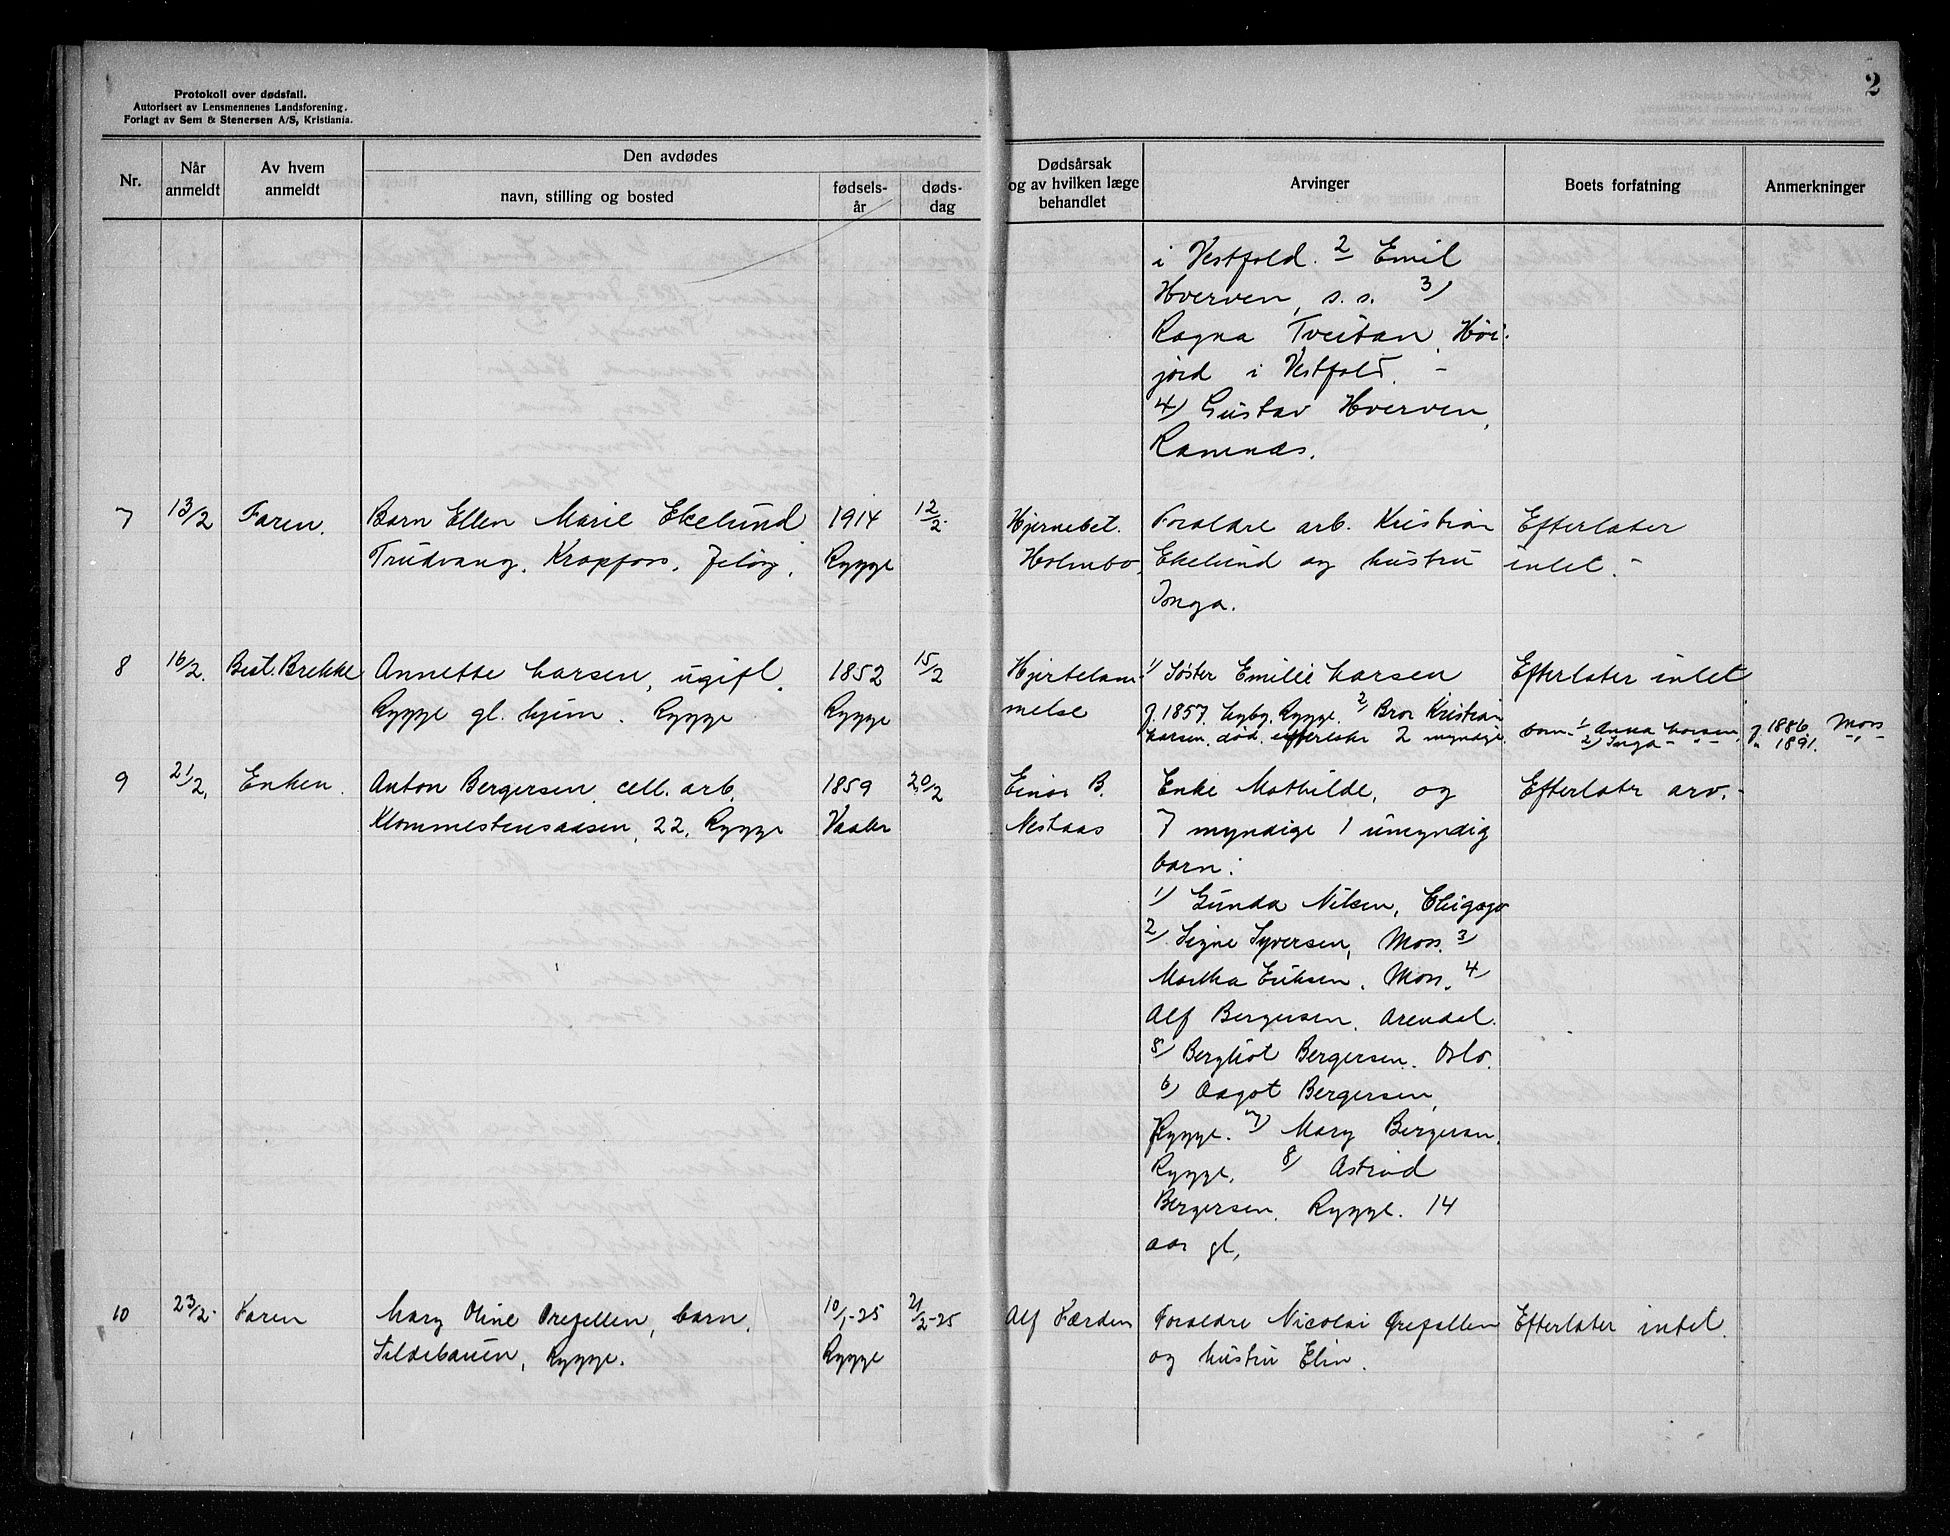 2
Protokoll over dødsfall.
Autorisert av Lensmennenes Landsforening.
Forlagt av Sem & Stenersen A/S, Kristiania.
Nr.
Når anmeldt
Av hvem anmeldt
Den avdødes
navn, stilling og bosted
fødsels-år
døds-dag
Dødsårsak og av hvilken læge behandlet
Arvinger
Boets forfatning
Anmerkninger
i Vestfold. 2 Emil
Hverven, s. s. 3)
Ragna Tveitan, Høi-
jord i Vestfold. -
4) Gustav Hverven,
Ramnæs.
7 13/2 Faren. Barn Ellen Marie Ekelund 1914 12/2. Hjernebet. Forældre arb. Kristian Efterlater
Trudvang, Krapfoss, Jeløy. Rygge Holmbo. Ekelund og hustru intet. -
Inga.
8 16/2. Best. Brekke Annette Larsen, ugift. 1852 15/2 Hjertelam- 1) Søster Emilie Larsen Efterlater intet
Rygge gl. hjem. Rygge Rygge melse f. 1857. Lyby, Rygge. 2) Bror Kristian
Larsen, død. efterlater 2 myndige barn. 1) Anna Larsen, f. 1886. Moss
2) Inga - " - " 1891. - " -
9 21/2. Enken. Anton Bergersen, cell. arb. 1859 20/2 Einar B. Enke Mathilde, og Efterlater arv. -
Klommestensaasen, 22, Rygge Vaaler Nestaas 7 myndige 1 umyndig
barn:
1) Gunda Nilsen, Chigago
2) Signe Syversen, Moss. 3)
Martha Eriksen, Moss. 4)
Alf Bergersen, Arendal.
5) Bergliot Bergersen. Oslo.
6) Aagot Bergersen,
Rygge. 7) Mary Bergersen,
Rygge, 8) Astrid
Bergersen, Rygge. 14
aar gl,
10 23/2. Faren Mary Oline Orefellen, barn. 10/1-25 21/2-25 Alf Færden Forældre Nicolai Orefellen Efterlater intet.
Sildebauen, Rygge. Rygge og hustru Elin.